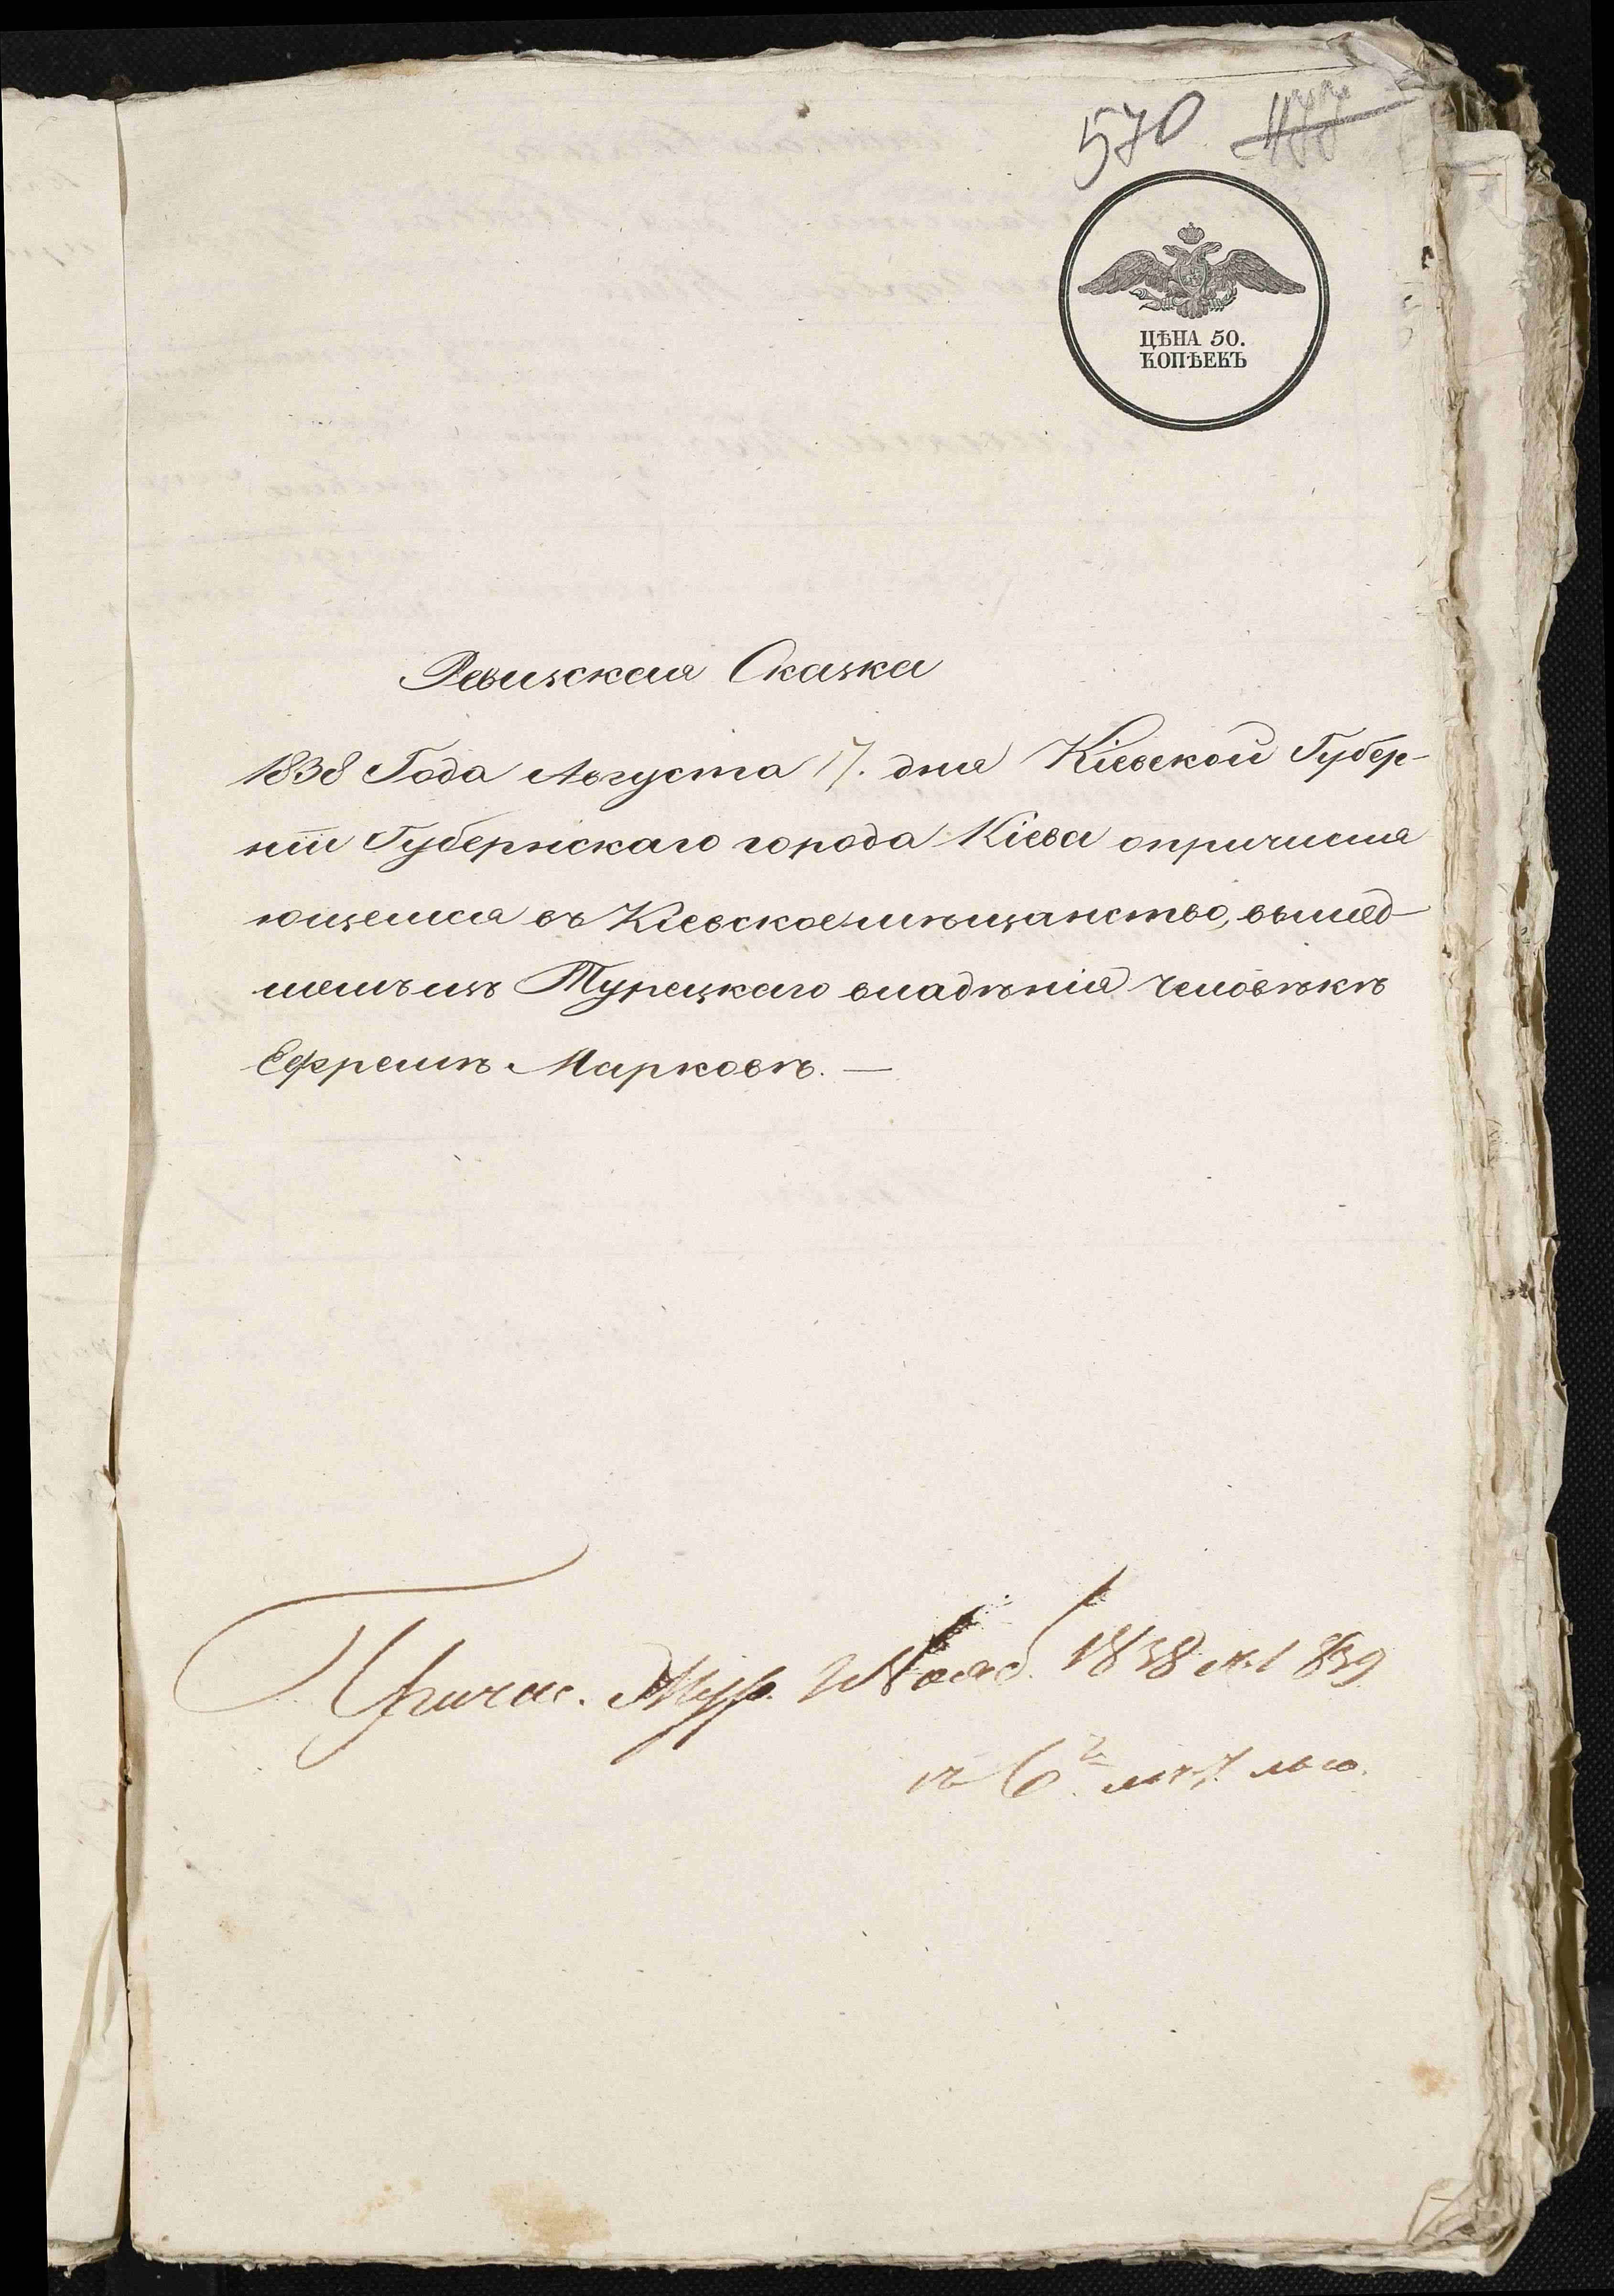 570 477
ЦѢНА 50.
КОПѢЕКЪ
Ревизская Сказка
1838 Года Августа 17. дня Кіевской Губер-
ніи Губернскаго города Кіева опричисля
ющемся въ Кіевское мѣщанство, вышед-
шемъ изъ Турецкаго владѣнія человѣкѣ
Ефремѣ Марковѣ. —
Причис. 1838 1839